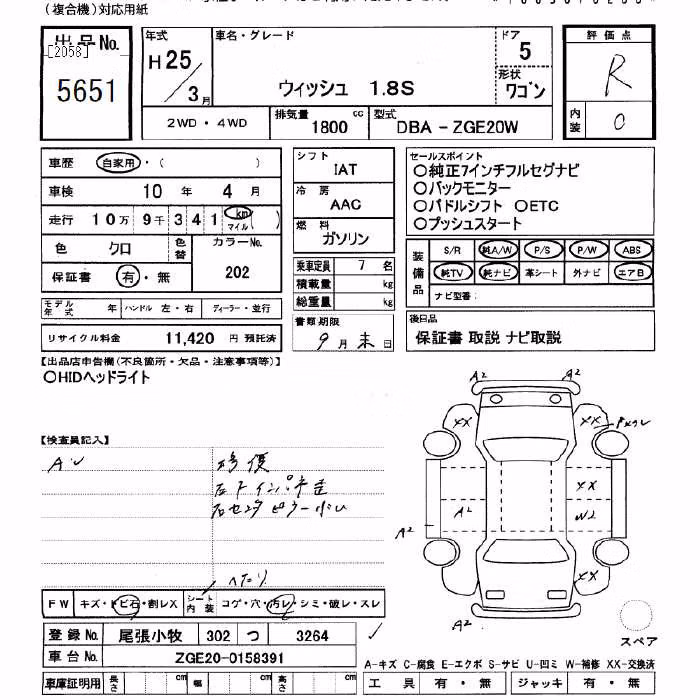 (複合機)対応用紙
出品No.
[2058]
5651
年式
H25/3月
車名・グレード
ウィッシュ 1.8S
ドア
5
形状
ワゴン
評価点
R
内装
0
2WD・4WD
排気量
1800 cc
型式
DBA-ZGE20W
車歴 自家用・( )
車検 10年 4月
走行 10万 9千 341 km マイル ( )
色 クロ
色替
カラーNo.
202
保証書 有・無
モデル年式 年 ハンドル 左・右 ディーラー・並行
リサイクル料金 11,420 円 預託済
シフト
IAT
冷房
AAC
燃料
ガソリン
乗車定員 7 名
積載量 kg
総重量 kg
書類期限
9月 末日
セールスポイント
○純正7インチフルセグナビ
○バックモニター
○パドルシフト ○ETC
○プッシュスタート
装備品
S/R 純A/W P/S P/W ABS
純TV 純ナビ 革シート 外ナビ エアB
ナビ型番:
後日品
保証書 取説 ナビ取説
【出品店申告欄(不良箇所・欠品・注意事項等)】
○HIDヘッドライト
【検査員記入】
修復
A2 A2
XX XX
XX
A2 W2
A2
XX
A2
スペア
FW キズ・トビ石・割レX
シート内装 コゲ・穴・汚レ・シミ・破レ・スレ
ヘタリ
登録No. 尾張小牧 302 つ 3264
車台No. ZGE20-0158391
車庫証明用 長さ cm 幅 cm 高さ cm
A-キズ C-腐食 E-エクボ S-サビ U-凹ミ W-補修 XX-交換済
工具 有・無 ジャッキ 有・無